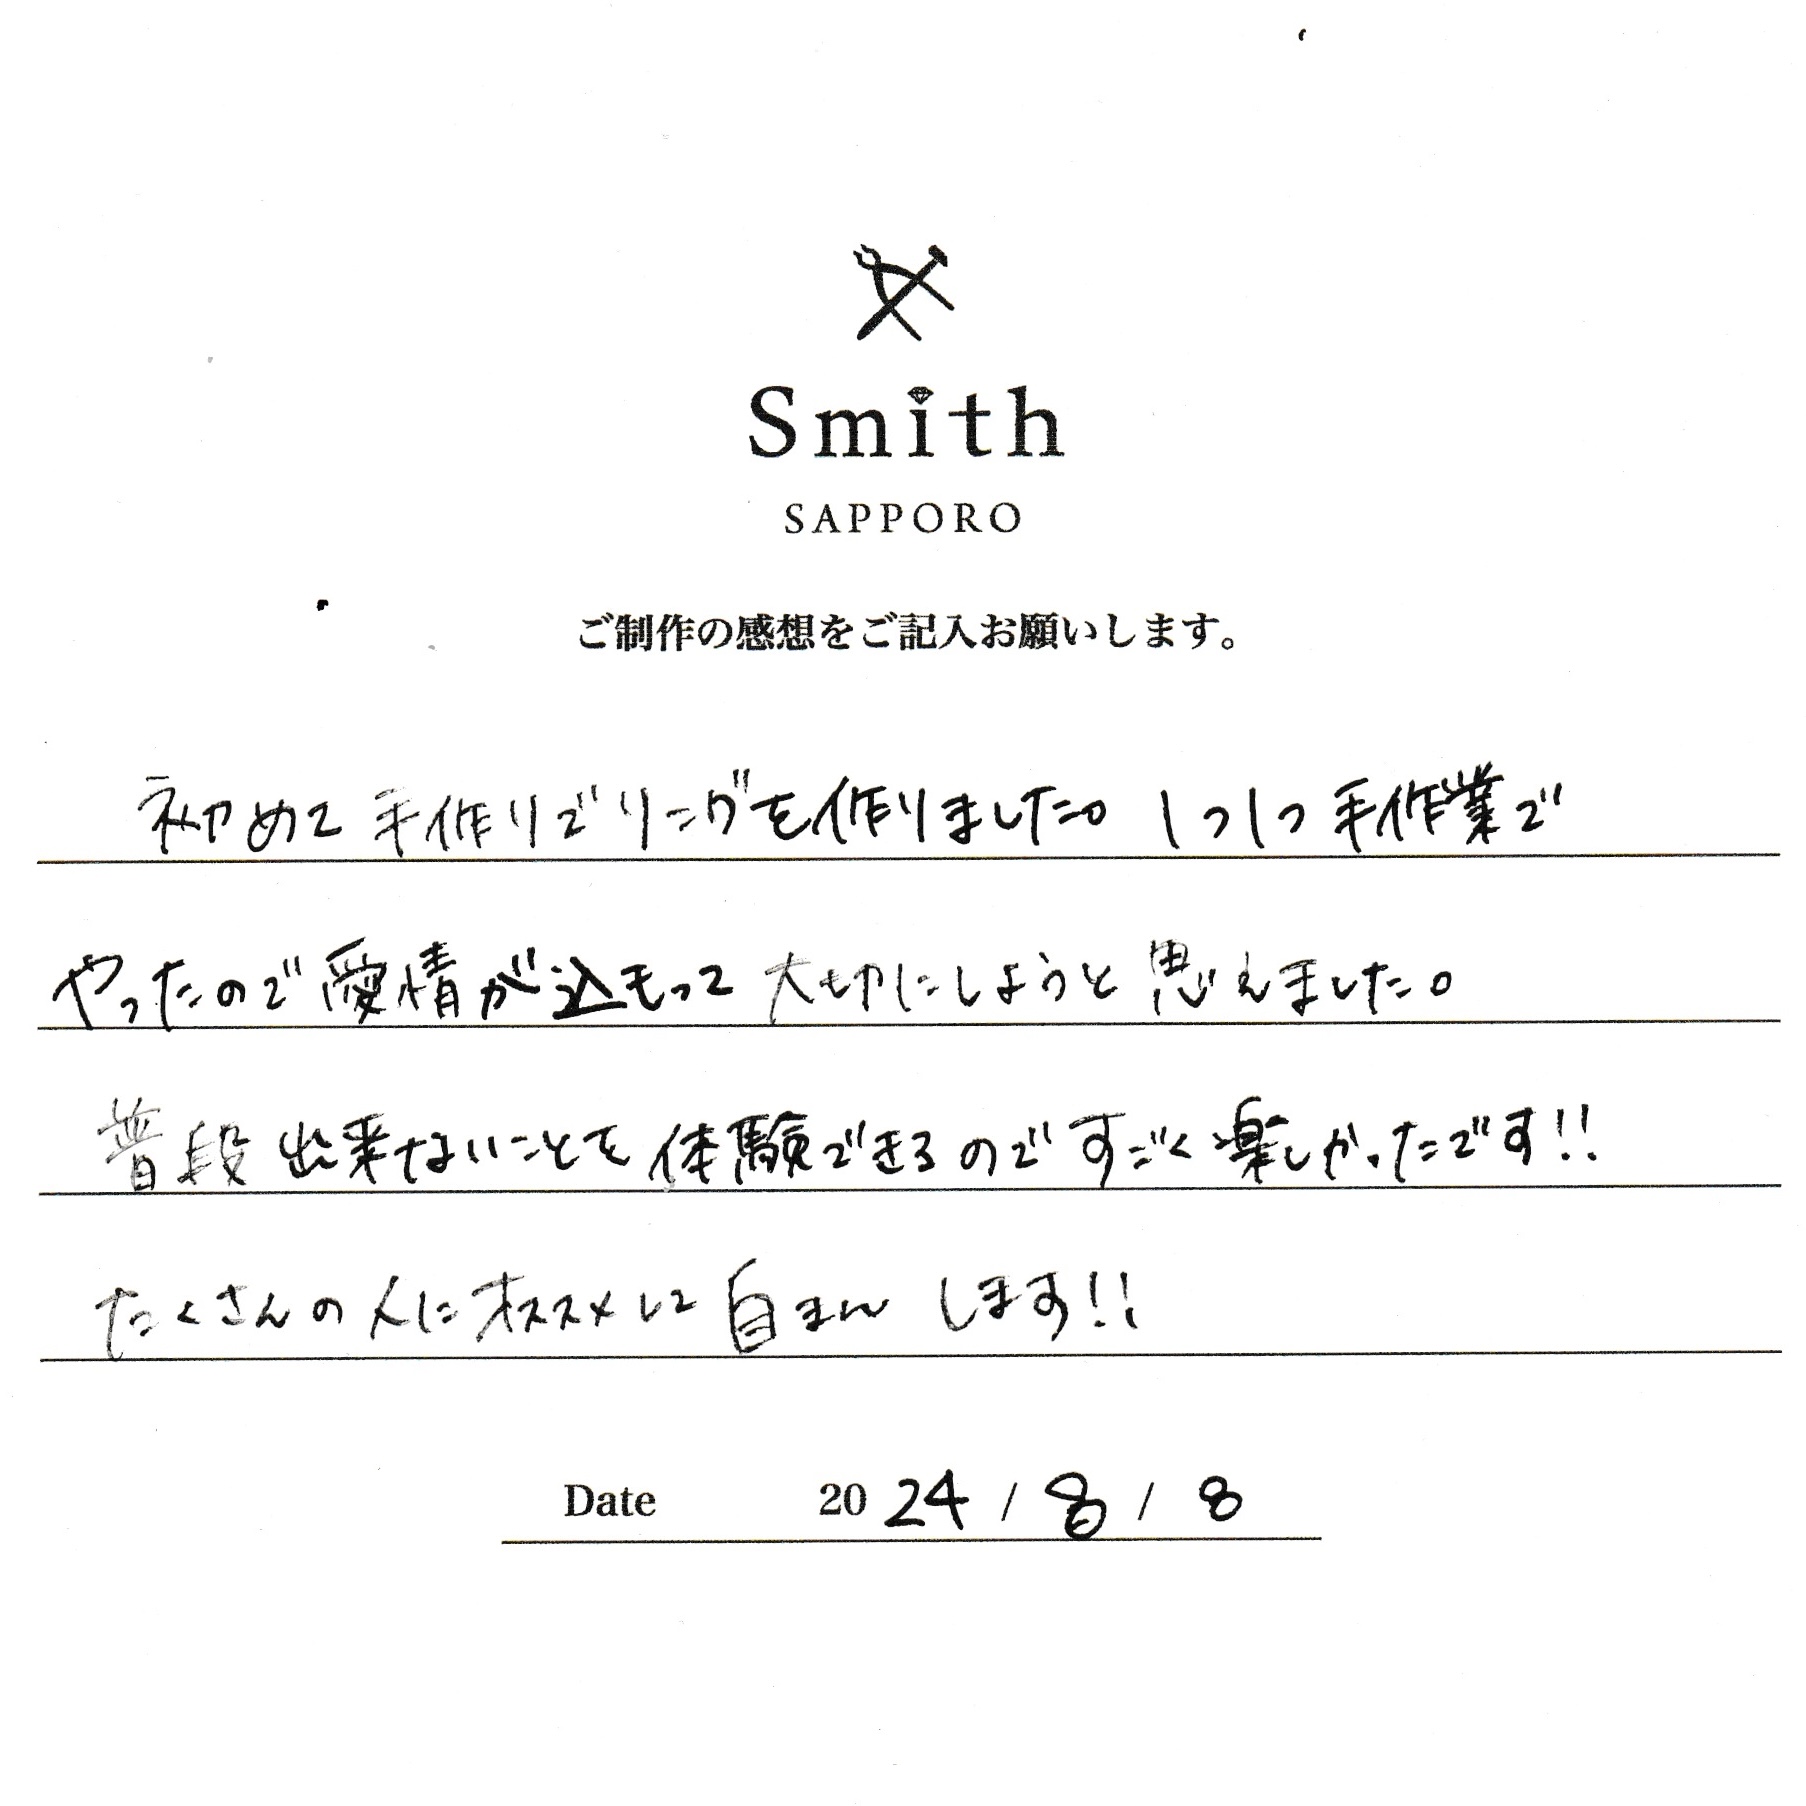 Smith
SAPPORO
ご制作の感想をご記入お願いします。
初めて手作りでリングを作りました。1つ1つ手作業で
やったので愛情が込もって大切にしようと思えました。
普段出来ないことを体験できるのですごく楽しかったです!!
たくさんの人にオススメして自まんします!!
Date 2024 / 8 / 8